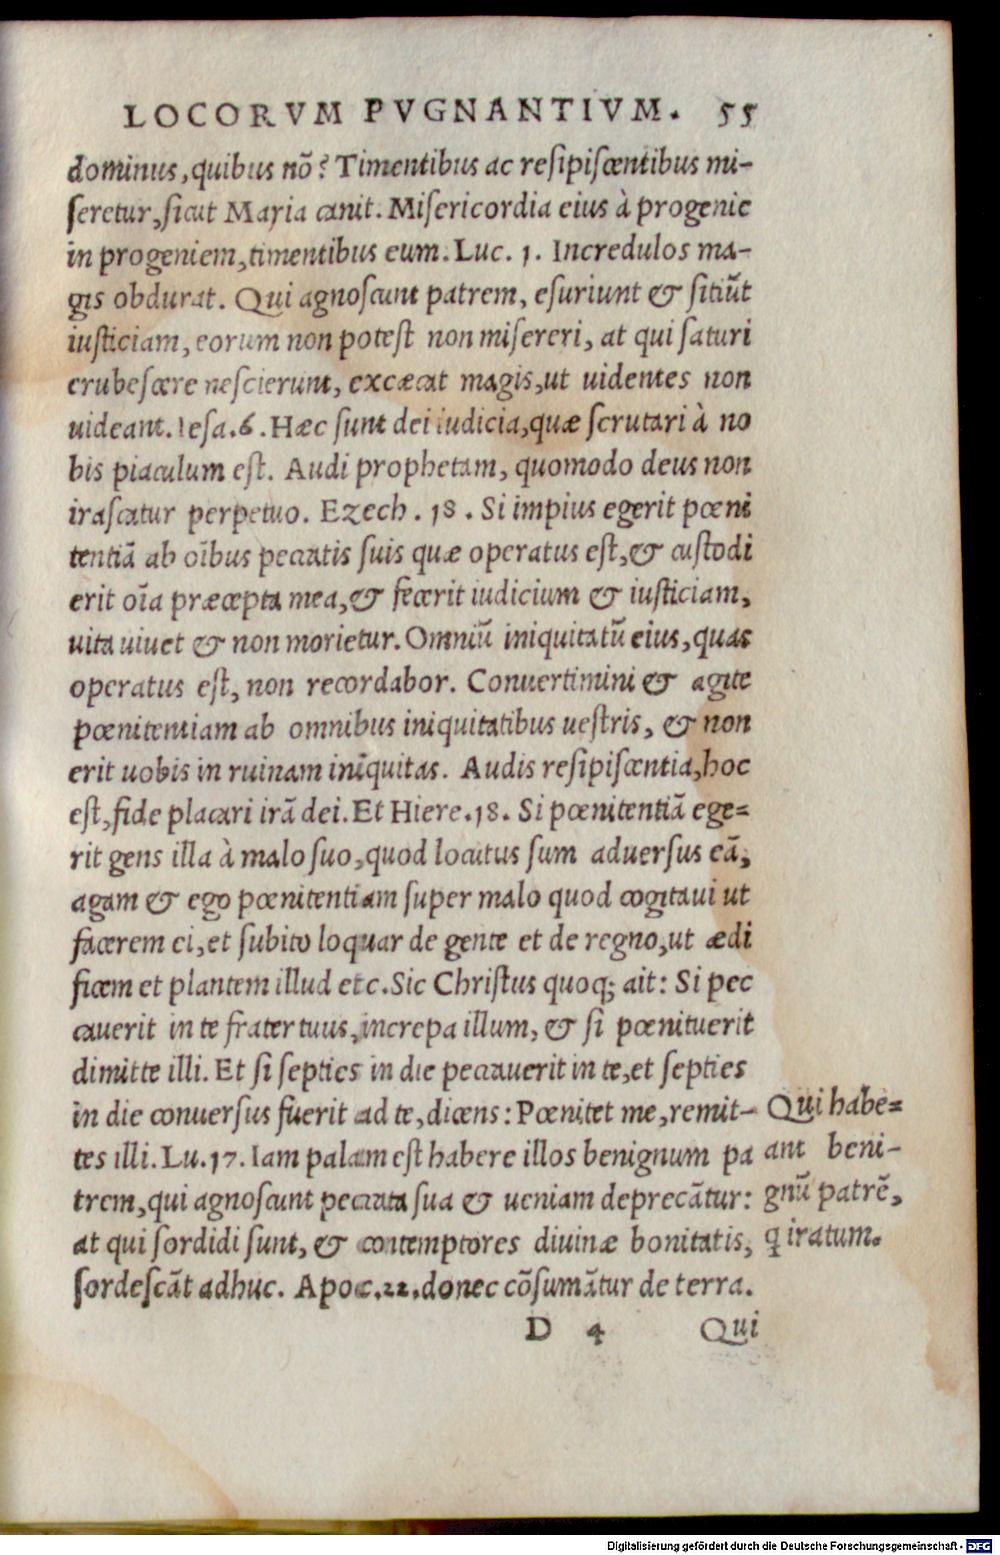 LOCORVM PVGNANTIVM. 55
dominus, quibus nō? Timentibus ac resipiscentibus mi-
seretur, sicut Maria canit. Misericordia eius à progenie
in progeniem, timentibus eum. Luc. 1. Incredulos ma-
gis obdurat. Qui agnoscunt patrem, esuriunt & sitiūt
iusticiam, eorum non potest non misereri, at qui saturi
erubescere nescierunt, excæcat magis, ut uidentes non
uideant. Iesa. 6. Hæc sunt dei iudicia, quæ scrutari à no
bis piaculum est. Audi prophetam, quomodo deus non
irascatur perpetuo. Ezech. 18. Si impius egerit pœni
tentiā ab oībus peccatis suis quæ operatus est, & custodi
erit oīa præcepta mea, & fecerit iudicium & iusticiam,
uita uiuet & non morietur. Omniū iniquitatū eius, quas
operatus est, non recordabor. Conuertimini & agite
pœnitentiam ab omnibus iniquitatibus uestris, & non
erit uobis in ruinam iniquitas. Audis resipiscentia, hoc
est, fide placari irā dei. Et Hiere. 18. Si pœnitentiā ege-
rit gens illa à malo suo, quod locutus sum aduersus eā,
agam & ego pœnitentiam super malo quod cogitaui ut
facerem ei, et subito loquar de gente et de regno, ut ædi
ficem et plantem illud etc. Sic Christus quoq; ait: Si pec
cauerit in te frater tuus, increpa illum, & si pœnituerit
dimitte illi. Et si septies in die peccauerit in te, et septies
in die conuersus fuerit ad te, dicens: Pœnitet me, remit-
tes illi. Lu. 17. Iam palam est habere illos benignum pa
trem, qui agnoscunt peccata sua & ueniam deprecātur:
at qui sordidi sunt, & contemptores diuinæ bonitatis,
sordescāt adhuc. Apoc. 22. donec cōsumātur de terra.
Qui habe-
ant beni-
gnū patrē,
q iratum.
D 4 Qui
Digitalisierung gefördert durch die Deutsche Forschungsgemeinschaft - DFG